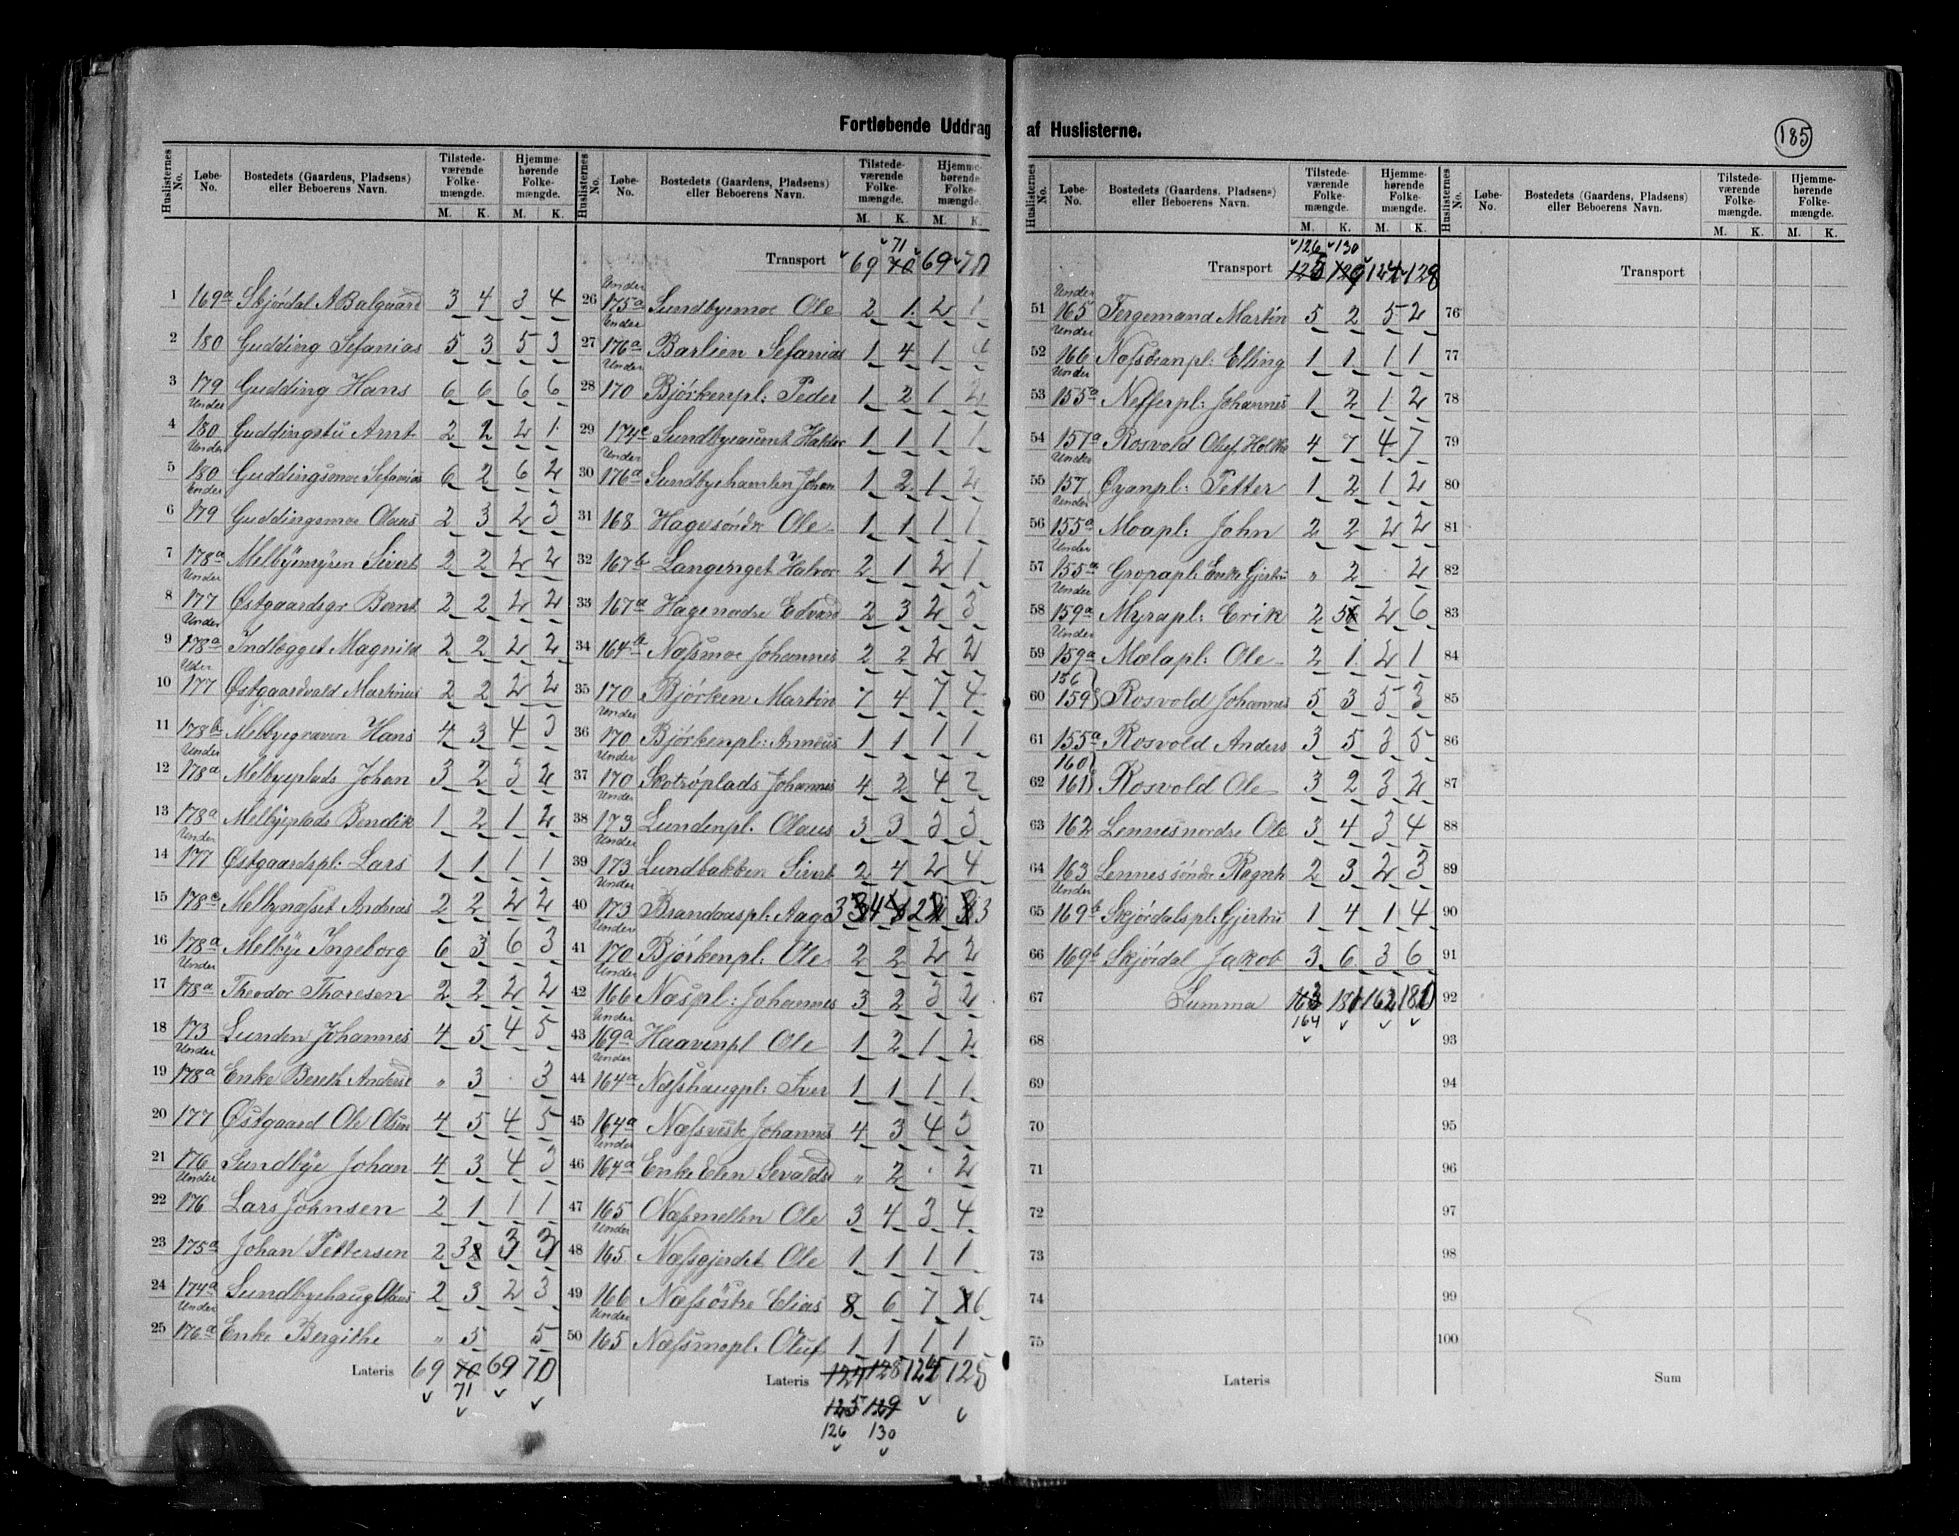 Fortløbende Uddrag af Huslisterne.
185
Huslisternes No. Løbe-No. Bostedets (Gaardens, Pladsens) eller Beboerens Navn. Tilstedeværende Folkemængde. M. K. Hjemmehørende Folkemængde. M. K.
1 169a Skjørdal A Balgaard 3 4 3 4
2 180 Gudding Sefanias 5 3 5 3
3 179 Gudding Hans 6 6 6 6
4 Under 180 Guddingstu Arnt 2 2 1
5 Under 180 Guddingsmoe Sefanias 6 2 6 2
6 Under 179 Guddingsmoe Olaus 2 3 2 3
7 178a Melbyemyren Sivert 2 2 2 2
8 Under 177 Østgaardsgr Bernt 2 2 2 2
9 Under 178a Indlægget Magnild 2 2 2 2
10 Under 177 Østgaardvald Martinus 2 2 2 2
11 178b Melbyegraven Hans 4 3 4 3
12 Under 178a Melbyeplads Johan 3 2 3 2
13 178a Melbyeplads Bendik 1 2 1 2
14 Under 177 Østgaardspl: Lars 1 1 1 1
15 178c Melbynæsset Andreas 2 2 2 2
16 178a Melbye Ingeborg 6 3 6 3
17 Under 178a Theodor Thoresen 2 2 2 2
18 173 Lunden Johannes 4 5 4 5
19 Under 178a Enke Bereth Anders 〃 3 · 3
20 177 Østgaard Ole Olsen 4 5 4 5
21 176 Sundbye Johan 4 3 4 3
22 Under 176 Lars Johnsen 2 1 1 1
23 175a Johan Pettersen 2 3 3 3
24 174a Sundbyehaug Olaus 2 3 2 3
25 Under 176a Enke Bergithe 〃 5 5
Lateris 69 70 69 70
71
Huslisternes No. Løbe-No. Bostedets (Gaardens, Pladsens) eller Beboerens Navn. Tilstedeværende Folkemængde. M. K. Hjemmehørende Folkemængde. M. K.
71
Transport 69 70 69 70
26 Under 175a Sundbyemoe Ole 2 1 2 1
27 Under 176a Barlien Sefanias 1 4 1 4
28 Under 170 Bjørkenpl: Peder 1 2 1 2
29 174c Sundbyeaunt Haldor 1 1 1 1
30 Under 176a Sundbyehamlen Johan 1 2 1 2
31 168 Hagesøndre Ole 1 1 1 1
32 167b Langenget Halvor 2 1 2 1
33 167a Hagenordre Edvard 2 3 2 3
34 164b Næssmoe Johannes 2 2 2 2
35 170 Bjørken Martin 7 4 7 4
36 Under 170 Bjørkenpl: Arneus 1 1 1 1
37 Under 170 Skotrøplads Johannes 4 2 4 2
38 Under 173 Lundenpl. Olaus 3 3 3 3
39 Under 173 Lundbakken Sivert 2 4 2 4
40 Under 173 Brandaaspl: Aage 3 4 2 3
41 Under 170 Bjørkenpl: Ole 2 2 2 2
42 Under 166 Næspl: Johannes 3 2 3 2
43 Under 169a Haavenpl Ole 1 2 1 2
44 Under 164a Næsshaugpl: Iver 1 1 1 1
45 164a Næssvestre Johannes 4 3 4 3
46 Under 164a Enke Elen Sevalds 〃 2 · 2
47 165 Næssmellen Ole 3 4 3 4
48 Under 165 Næssgjerdet Ole 1 1 1 1
49 166 Næssøstre Elias 8 6 7 6
50 Under 165 Næssmopl: Oluf 1 1 1 1
Lateris 124 128 124 128
125 129
126 130
Huslisternes No. Løbe-No. Bostedets (Gaardens, Pladsens) eller Beboerens Navn. Tilstedeværende Folkemængde. M. K. Hjemmehørende Folkemængde. M. K.
126 130
Transport 125 129 124 128
51 Under 165 Fergemand Martin 5 2 5 2
52 Under 166 Næssøranpl: Elling 1 1 1 1
53 Under 155a Nefferpl: Johannes 1 2 1 2
54 157a Rosvold Oluf Holthe 4 7 4 7
55 Under 157 Øyanpl: Petter 1 2 1 2
56 Under 155a Moapl: John 2 2 2 2
57 Under 155a Gropapl: Enke Gjertru 〃 2 · 2
58 Under 159a Myrapl: Erik 2 5 2 6
59 Under 159a Mælapl: Ole 2 1 2 1
60 156 159 Rosvold Johannes 5 3 5 3
61 155a Rosvold Anders 3 5 3 5
62 160 161 Rosvold Ole 3 2 3 2
63 162 Lennesnordre Ole 3 4 3 4
64 163 Lennes søndre Ragnh 2 3 2 3
65 Under 169b Skjørdalspl: Gjertru 1 4 1 4
66 169b Skjørdal Jakob 3 6 3 6
67 Summa 163 181 162 180
164
68
69
70
71
72
73
74
75
Lateris
Huslisternes No. Løbe-No. Bostedets (Gaardens, Pladsens) eller Beboerens Navn. Tilstedeværende Folkemængde. M. K. Hjemmehørende Folkemængde. M. K.
Transport
76
77
78
79
80
81
82
83
84
85
86
87
88
89
90
91
92
93
94
95
96
97
98
99
100
Sum